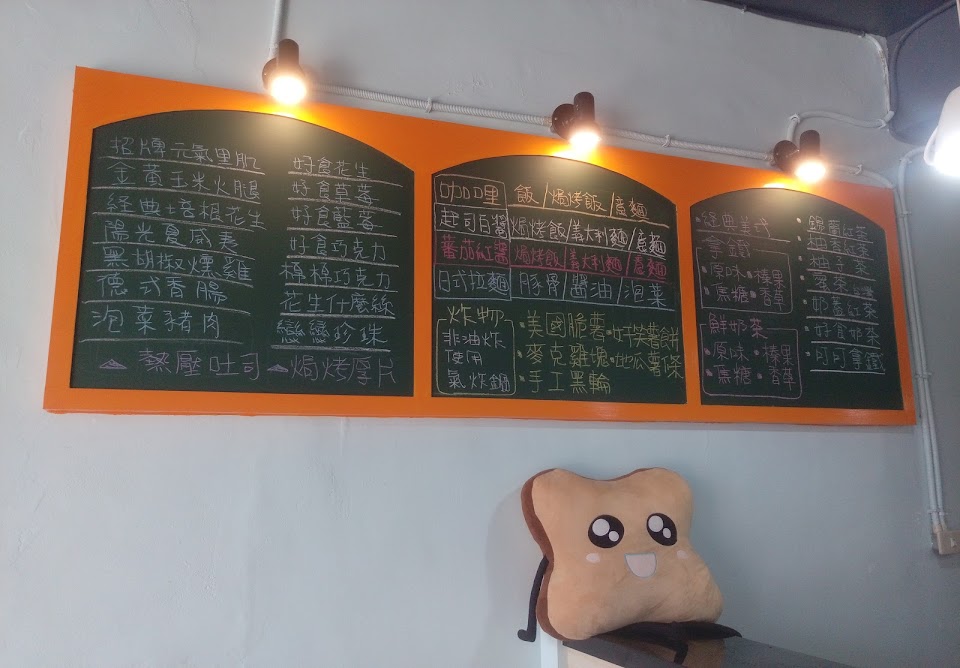 招牌元氣里肌
金黃玉米火腿
經典培根花生
陽光夏威夷
黑胡椒燻雞
德式香腸
泡菜豬肉
好食花生
好食草莓
好食藍莓
好食巧克力
棉棉巧克力
花生什麼絲
戀戀珍珠
熱壓吐司 焗烤厚片
咖哩 飯/焗烤飯/烏麵
起司白醬 焗烤飯/義大利麵/烏麵
蕃茄紅醬 焗烤飯/義大利麵/烏麵
日式拉麵 豚骨/醬油/泡菜
炸物
非油炸
使用
氣炸鍋
美國脆薯 好笑薯餅
麥克雞塊 地瓜薯條
手工黑輪
經典美式
拿鐵
原味 榛果
焦糖 香草
鮮奶茶
原味 榛果
焦糖 香草
錫蘭紅茶
柚香紅茶
柚子茶
奶蓋紅茶
好食奶茶
可可拿鐵